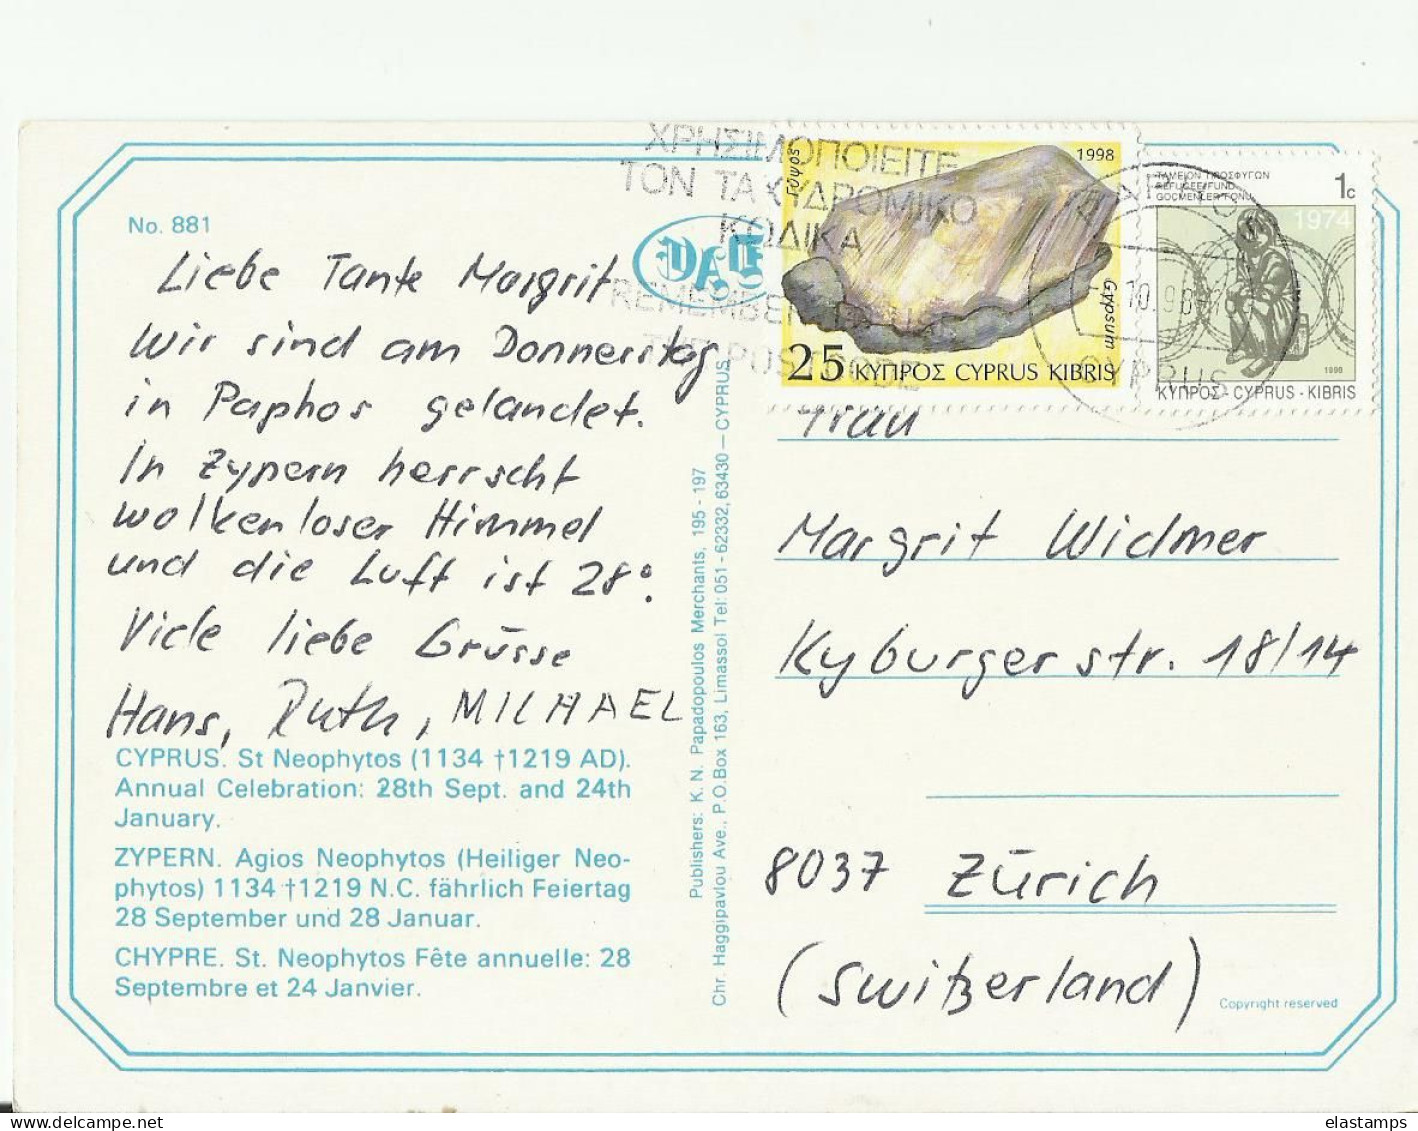 No. 881
Liebe Tante Margrit
Wir sind am Donnerstag
in Paphos gelandet.
In Zypern herrscht
wolkenloser Himmel
und die Luft ist 28°.
Viele liebe Grüsse
Hans, Ruth, MICHAEL
CYPRUS. St Neophytos (1134 †1219 AD).
Annual Celebration: 28th Sept. and 24th
January.
ZYPERN. Agios Neophytos (Heiliger Neo-
phytos) 1134 †1219 N.C. fährlich Feiertag
28 September und 28 Januar.
CHYPRE. St. Neophytos Fête annuelle: 28
Septembre et 24 Janvier.
Publishers: K. N. Papadopoulos Merchants, 195 - 197
Chr. Haggipavlou Ave., P.O.Box 163, Limassol Tel: 051 - 62332, 63430 — CYPRUS
ΧΡΗΣΙΜΟΠΟΙΕΙΤΕ
ΤΟΝ ΤΑΧΥΔΡΟΜΙΚΟ
ΚΩΔΙΚΑ
REMEMBER
THE POST CODE
Γύψος
1998
Gypsum
25 ΚΥΠΡΟΣ CYPRUS KIBRIS
ΤΑΜΕΙΟΝ ΠΡΟΣΦΥΓΩΝ
REFUGEE FUND
GÖÇMENLER FONU
1c
1974
1998
ΚΥΠΡΟΣ - CYPRUS - KIBRIS
CYPRUS
Frau
Margrit Widmer
Kyburgerstr. 18/14
8037 Zürich
(Switzerland)
Copyright reserved
elastamps